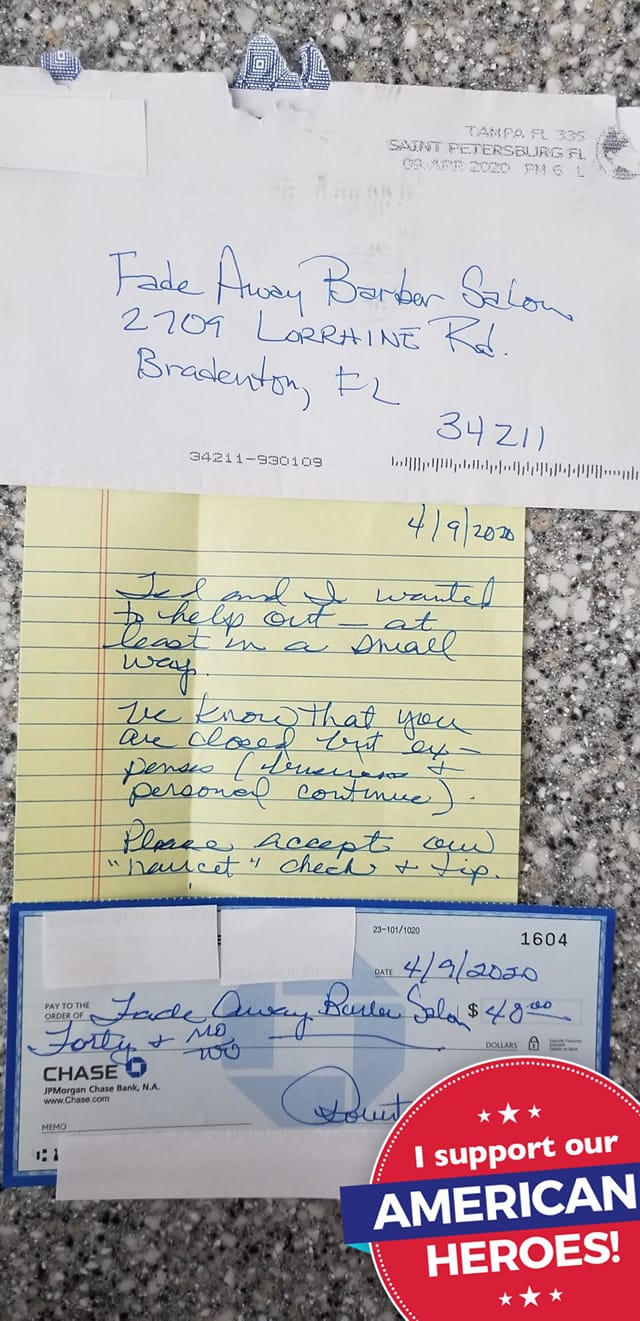 TAMPA FL 335
SAINT PETERSBURG FL
09 APR 2020 PM 6 L
Fade Away Barber Salon
2709 LORRAINE Rd.
Bradenton, FL
34211
34211-930109
4/9/2020
Ted and I wanted
to help out - at
least in a small
way.
We know that you
are closed but ex-
penses (business &
personal continue).
Please accept our
"haircut" check & tip.
23-101/1020
1604
DATE 4/9/2020
PAY TO THE
ORDER OF Fade Away Barber Salon $ 40 00
Forty & no/100
DOLLARS
CHASE
JPMorgan Chase Bank, N.A.
www.Chase.com
MEMO
I support our
AMERICAN
HEROES!